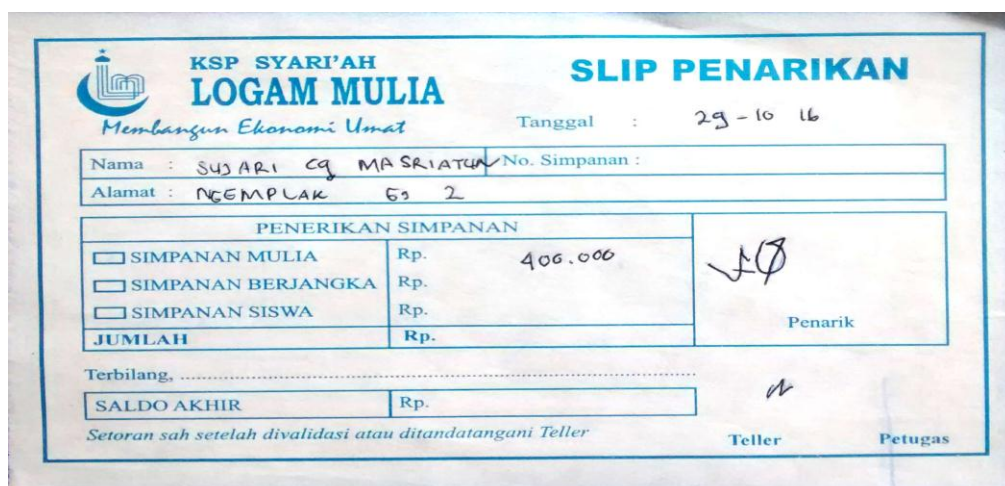 KSP SYARI'AH
LOGAM MULIA
Membangun Ekonomi Umat
SLIP PENARIKAN
Tanggal : 29-10 16
Nama : SUJARI cq MASRIATUN No. Simpanan :
Alamat : NGEMPLAK 2
PENERIKAN SIMPANAN
SIMPANAN MULIA Rp. 400.000
SIMPANAN BERJANGKA Rp.
SIMPANAN SISWA Rp.
JUMLAH Rp.
Penarik
Terbilang, ....................
SALDO AKHIR Rp.
Setoran sah setelah divalidasi atau ditandatangani Teller
Teller Petugas